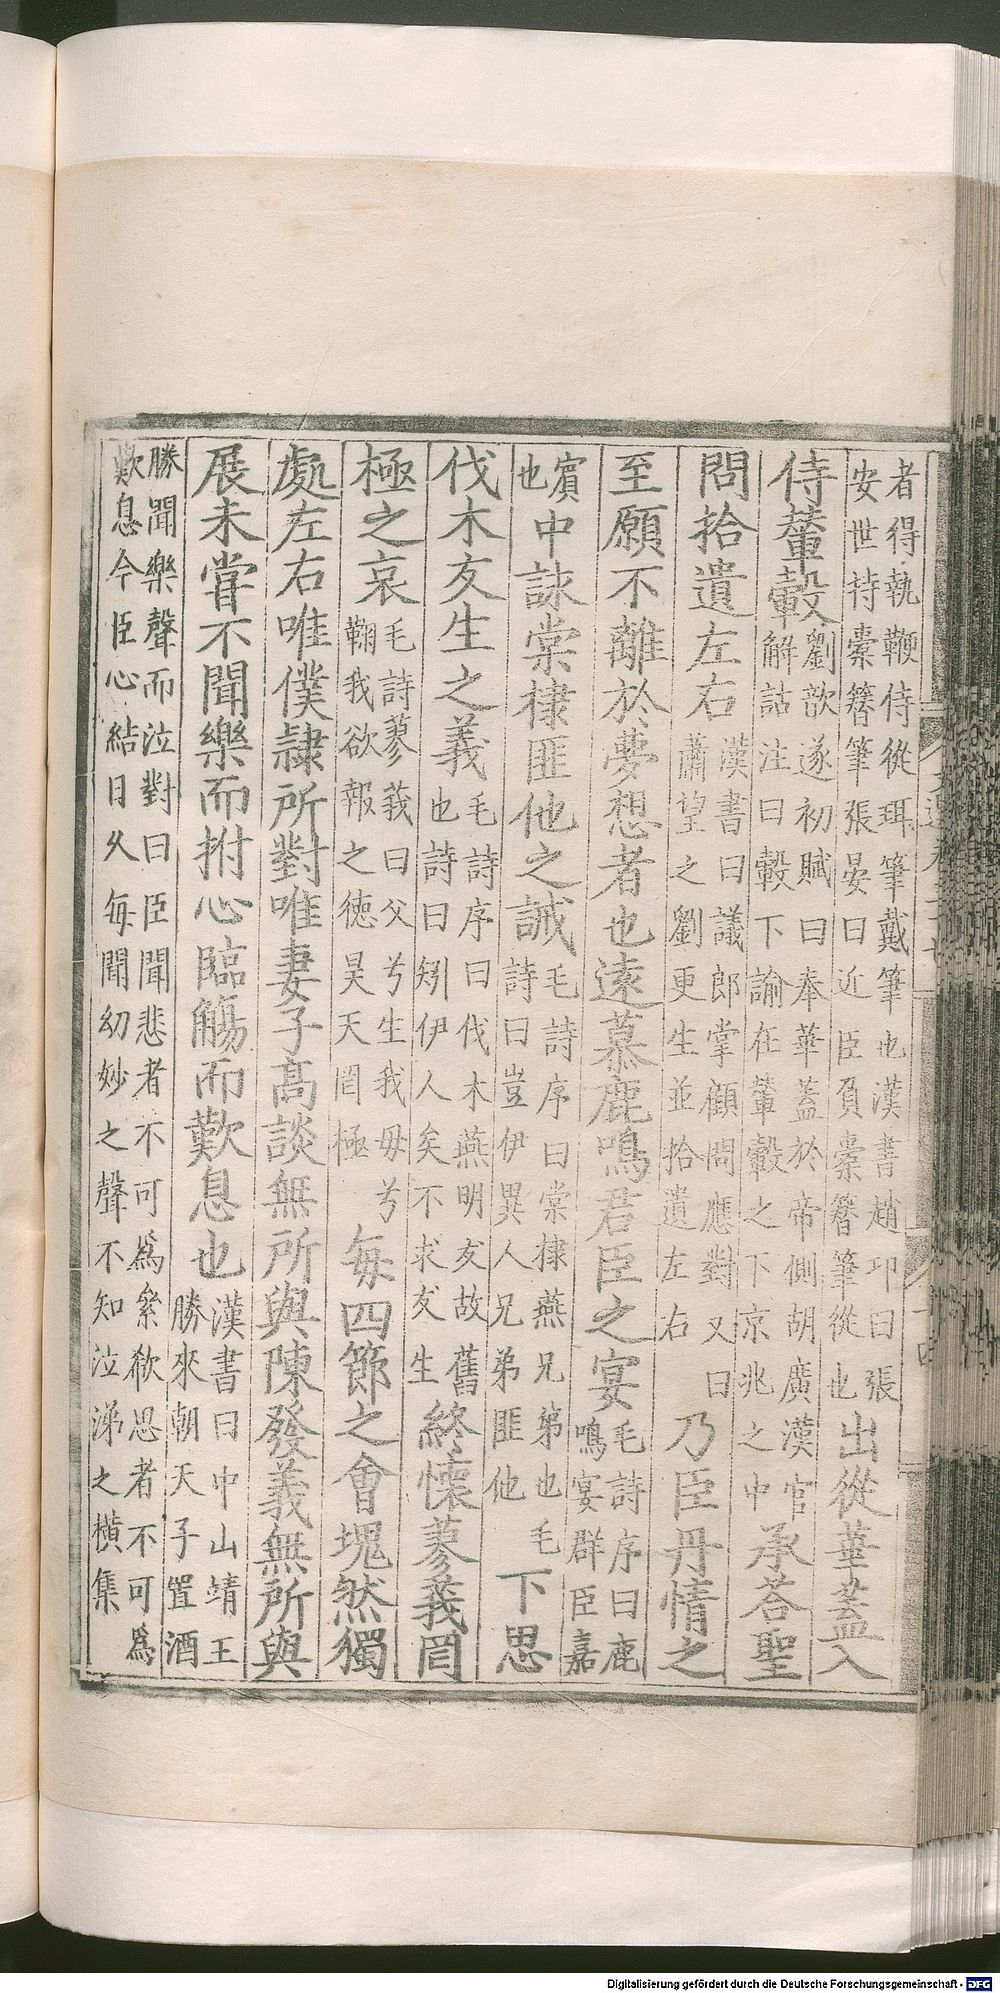 者得執鞭侍從珥筆戴筆也漢書趙卭曰張
安世持橐簪筆張晏曰近臣負橐簪筆從也出從華蓋入
侍輦轂劉歆遂初賦曰奉華蓋於帝側胡廣漢官
解詁注曰轂下諭在輦轂之下京兆之中承荅聖
問拾遺左右漢書曰議郎掌顧問應對又曰
蕭望之劉更生並拾遺左右乃臣丹情之
至願不離於夢想者也遠慕鹿鳴君臣之宴毛詩序曰鹿
鳴宴群臣嘉
賓
也中詠棠棣匪他之誡毛詩序曰棠棣燕兄弟也毛
詩曰豈伊異人兄弟匪他下思
伐木友生之義毛詩序曰伐木燕明友故舊
也詩曰矧伊人矣不求友生終懷蓼莪罔
極之哀毛詩蓼莪曰父兮生我毋兮
鞠我欲報之德昊天罔極每四節之會塊然獨
處左右唯僕隷所對唯妻子高談無所與陳發義無所與
展未甞不聞樂而拊心臨觴而歎息也漢書曰中山靖王
勝來朝天子置酒
勝聞樂聲而泣對曰臣聞悲者不可爲絫欷思者不可爲
歎息今臣心結日久每聞幼妙之聲不知泣涕之橫集
Digitalisierung gefördert durch die Deutsche Forschungsgemeinschaft - DFG